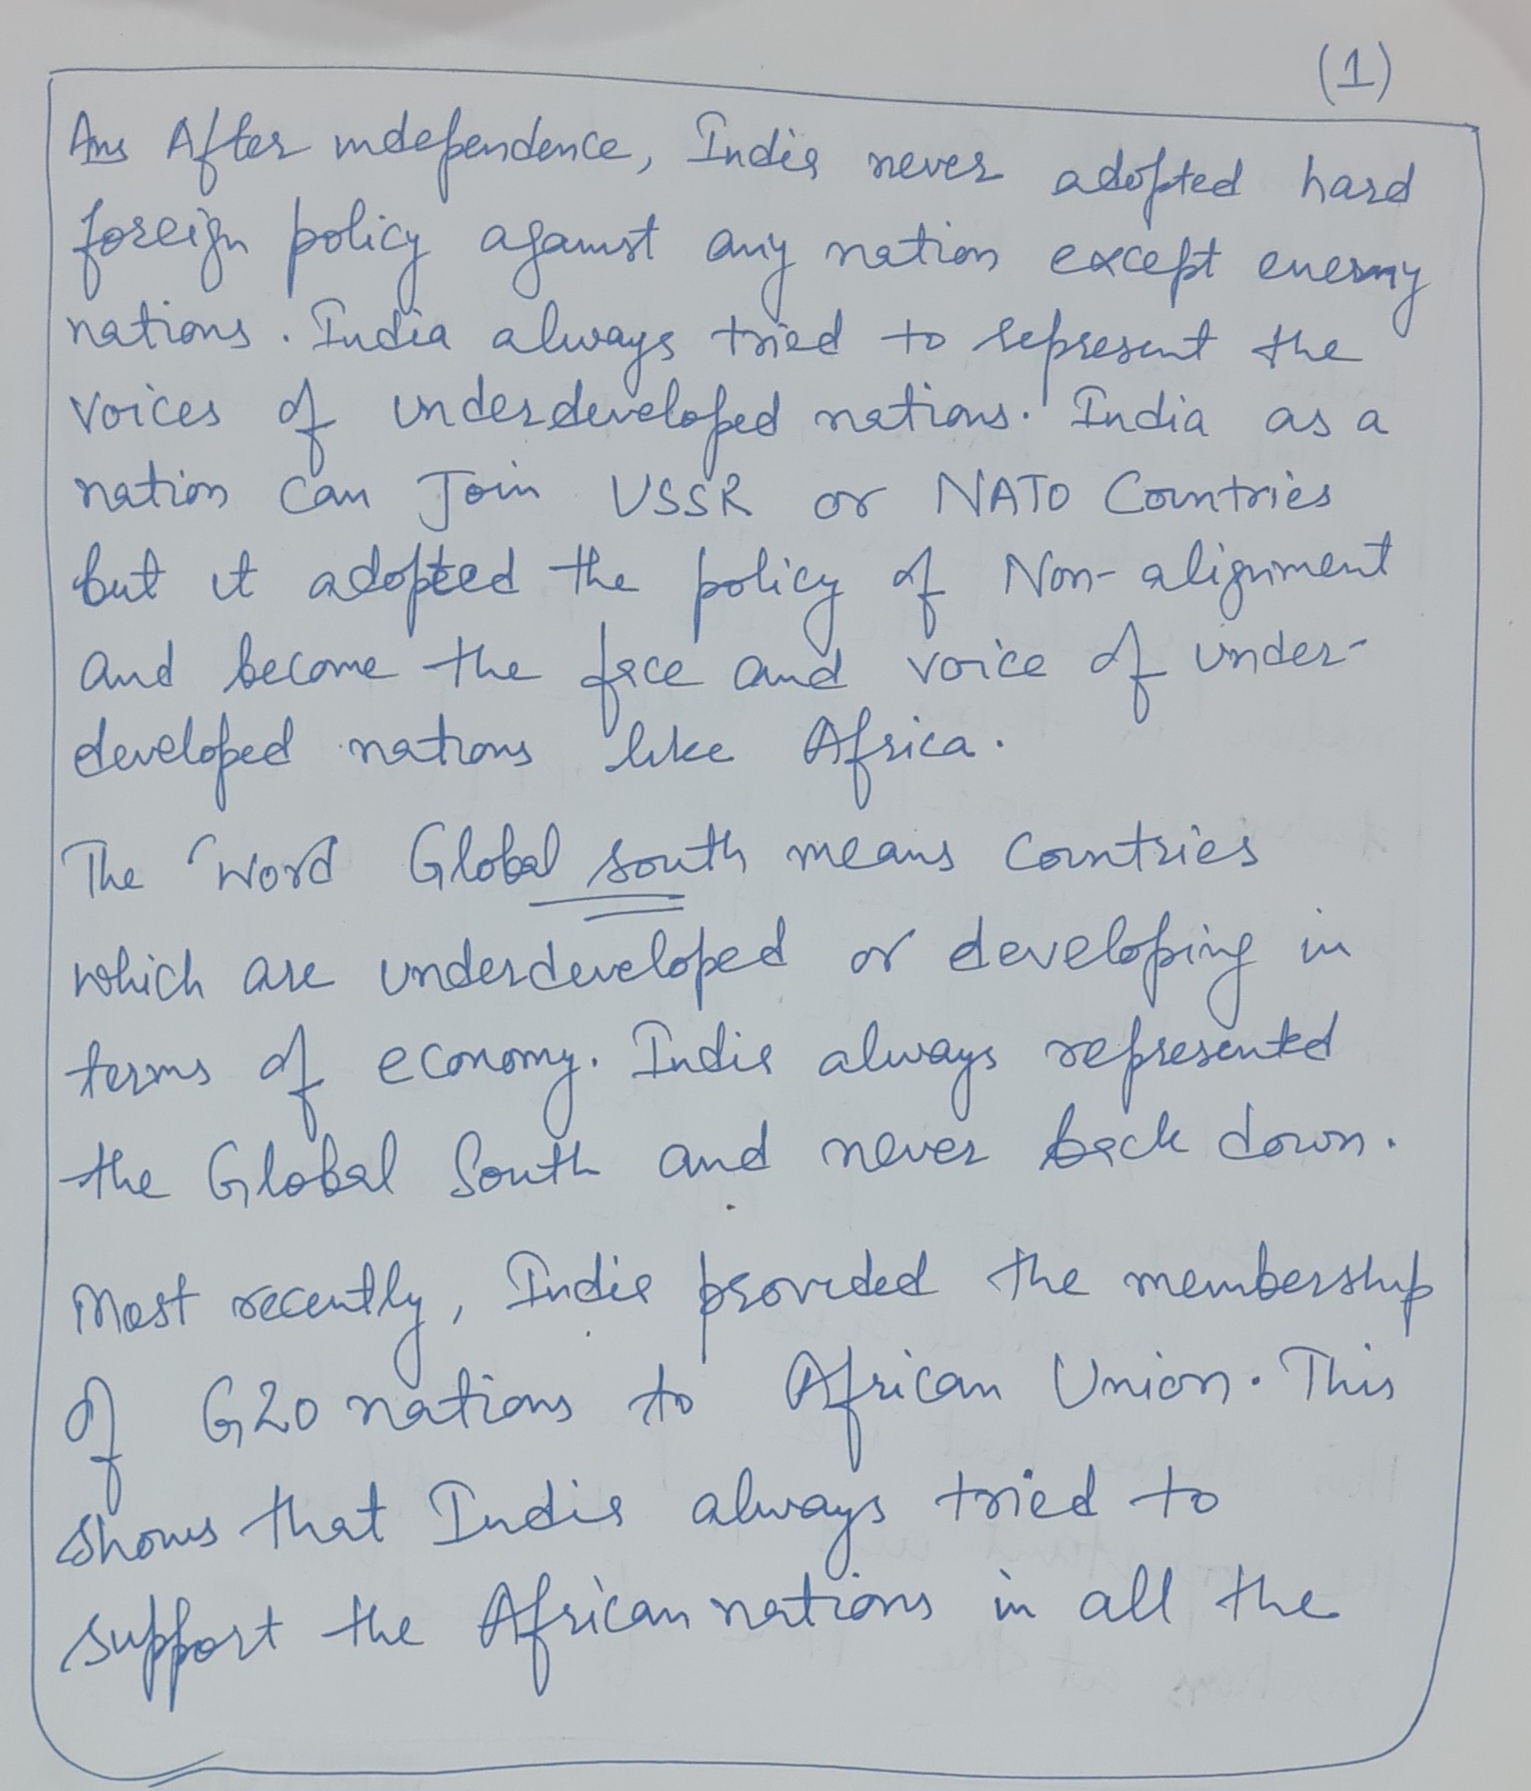 (1)
Ans After independence, India never adopted hard
foreign policy against any nation except enemy
nations. India always tried to represent the
voices of underdeveloped nations. India as a
nation can Join USSR or NATO Countries
but it adopted the policy of Non-alignment
and become the face and voice of under-
developed nations like Africa.
The Word Global south means Countries
which are underdeveloped or developing in
terms of economy. India always represented
the Global South and never back down.
Most recently, India provided the membership
of G20 nations to African Union. This
shows that India always tried to
support the African nations in all the